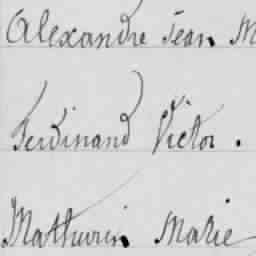 Alexandre Jean M
Ferdinand Victor.
Mathurin Marie